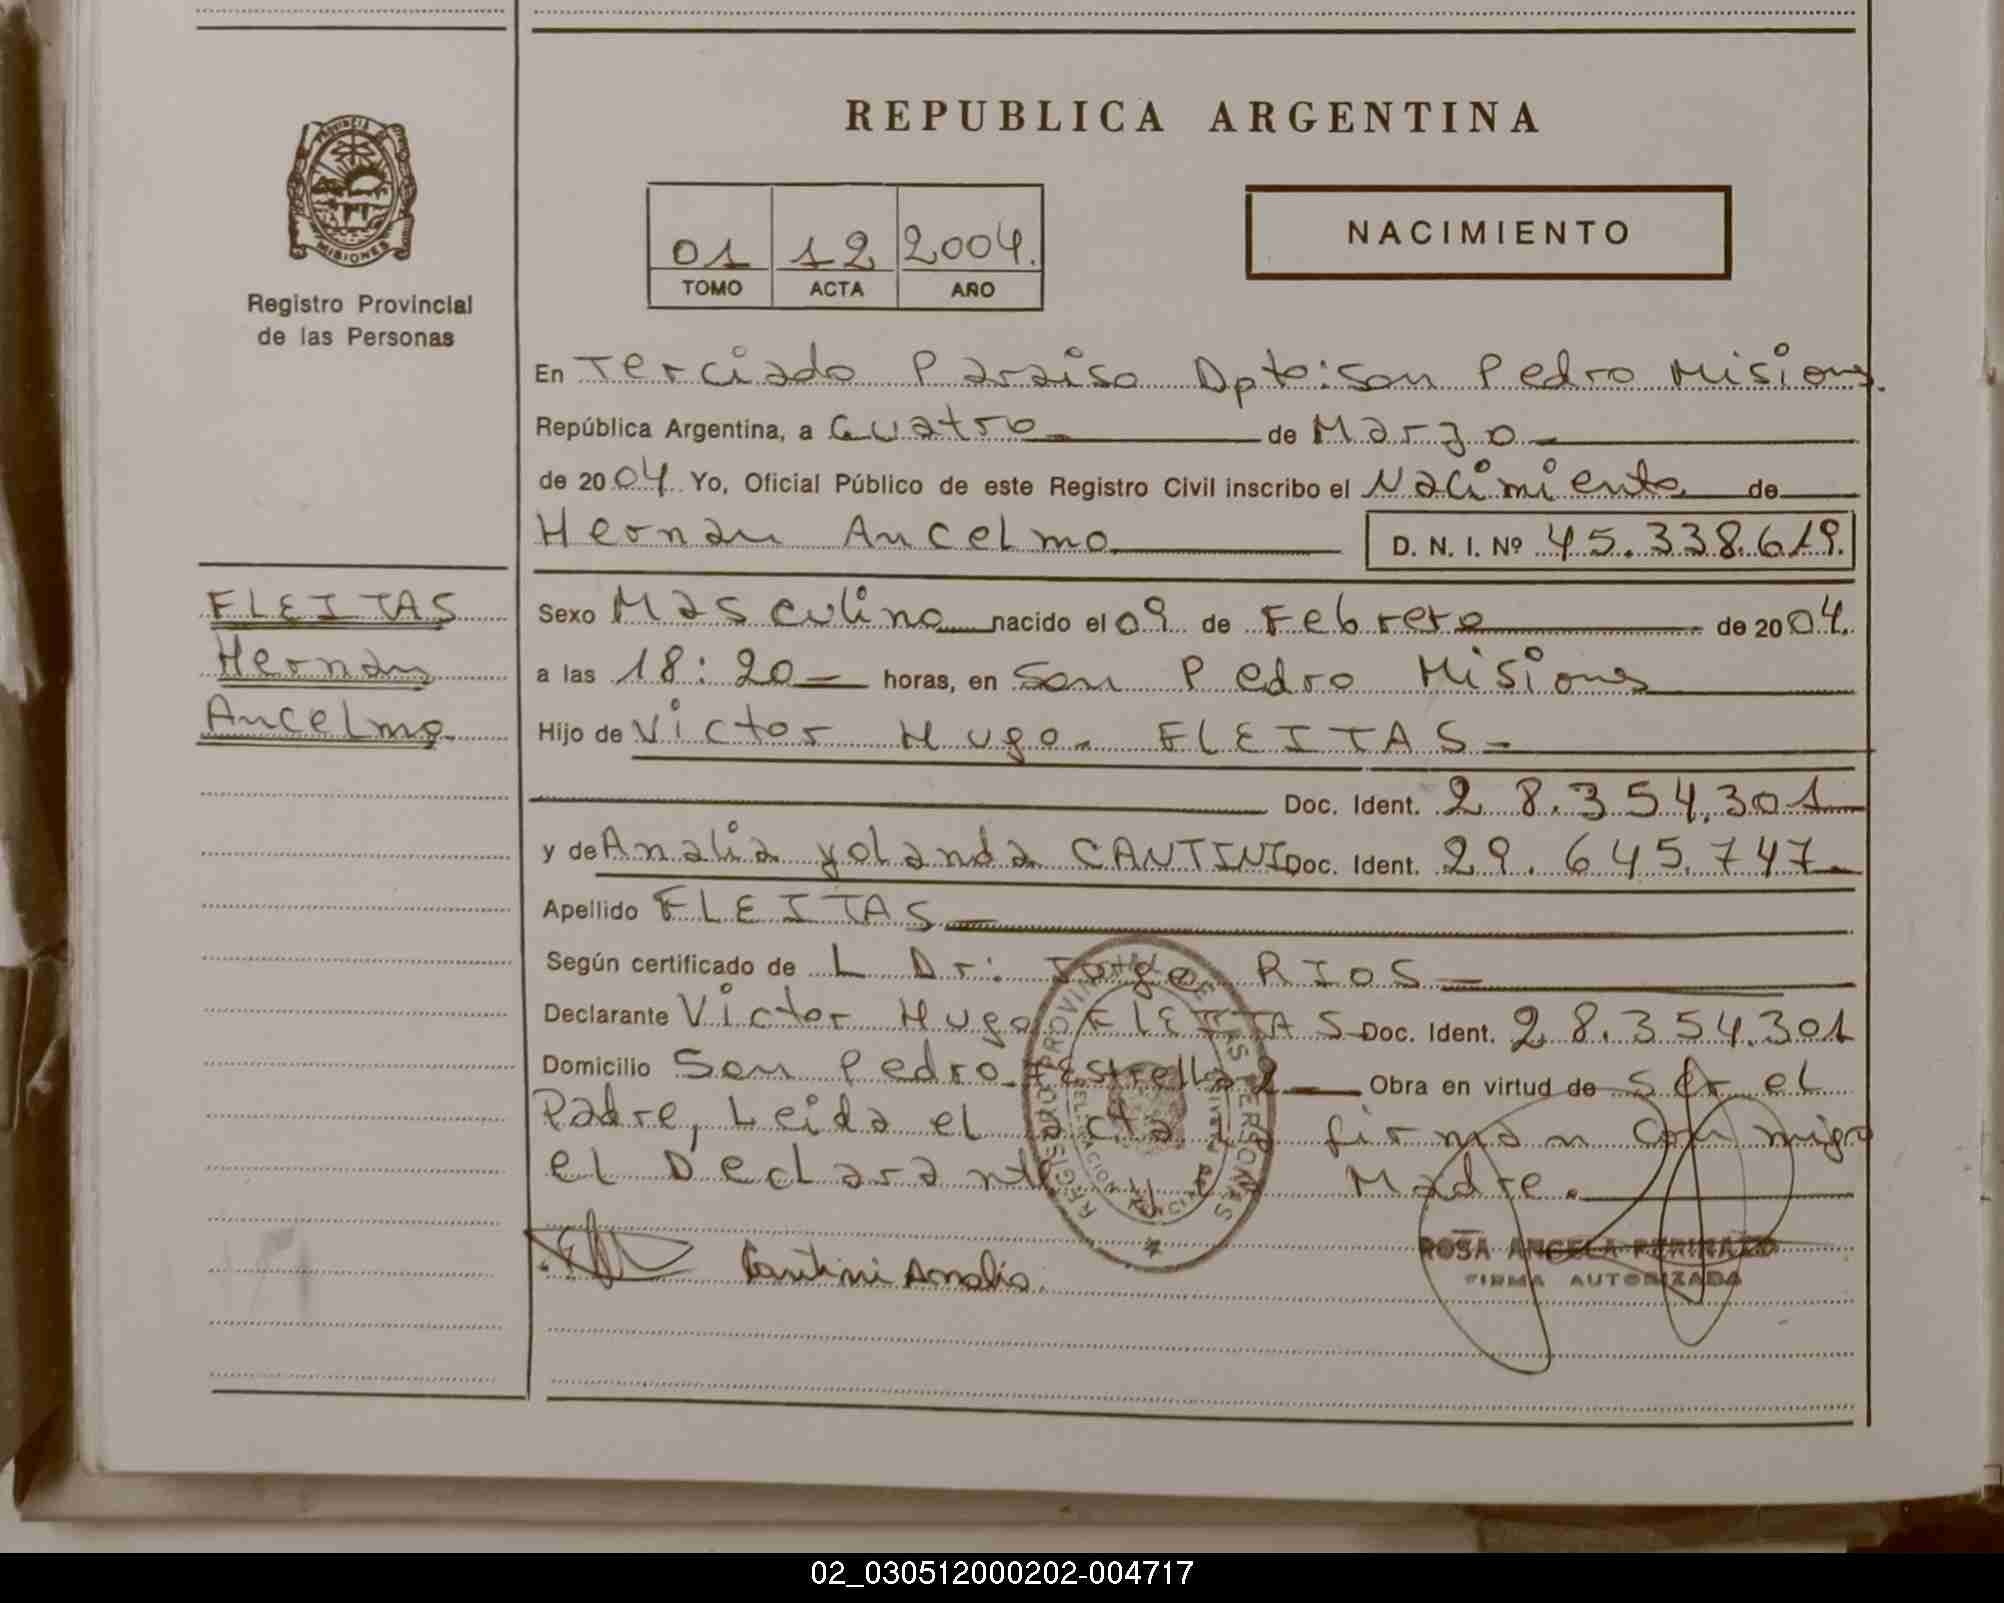 REPUBLICA ARGENTINA
PROVINCIA DE
MISIONES
Registro Provincial
de las Personas
01 12 2004.
TOMO ACTA AÑO
NACIMIENTO
En Terciado Paraiso Dpto: San Pedro Misiones.
República Argentina, a Cuatro de Marzo
de 2004 Yo, Oficial Público de este Registro Civil inscribo el Nacimiento de
Hernan Ancelmo D. N. I. Nº 45.338.619.
FLEITAS
Hernan
Ancelmo
Sexo Masculino nacido el 09 de Febrero de 2004.
a las 18:20 horas, en San Pedro Misiones
Hijo de Victor Hugo FLEITAS
Doc. Ident. 28.354.301
y de Analia yolanda CANTINI Doc. Ident. 29.645.747
Apellido FLEITAS
Según certificado de L Dr: Jorge RIOS
Declarante Victor Hugo FLEITAS Doc. Ident. 28.354.301
Domicilio San Pedro Estrella 2 Obra en virtud de ser el
Padre, Leida el acta firman conmigo
el Declarante Madre.
REGISTRO PROVINCIAL DE LAS PERSONAS
Cantini Analia.
ROSA ANGELA
FIRMA AUTORIZADA
02_030512000202-004717